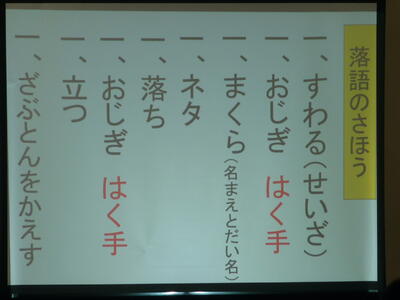 落語のさほう
一、すわる(せいざ)
一、おじぎ はく手
一、まくら(名まえとだい名)
一、ネタ
一、落ち
一、おじぎ はく手
一、立つ
一、ざぶとんをかえす